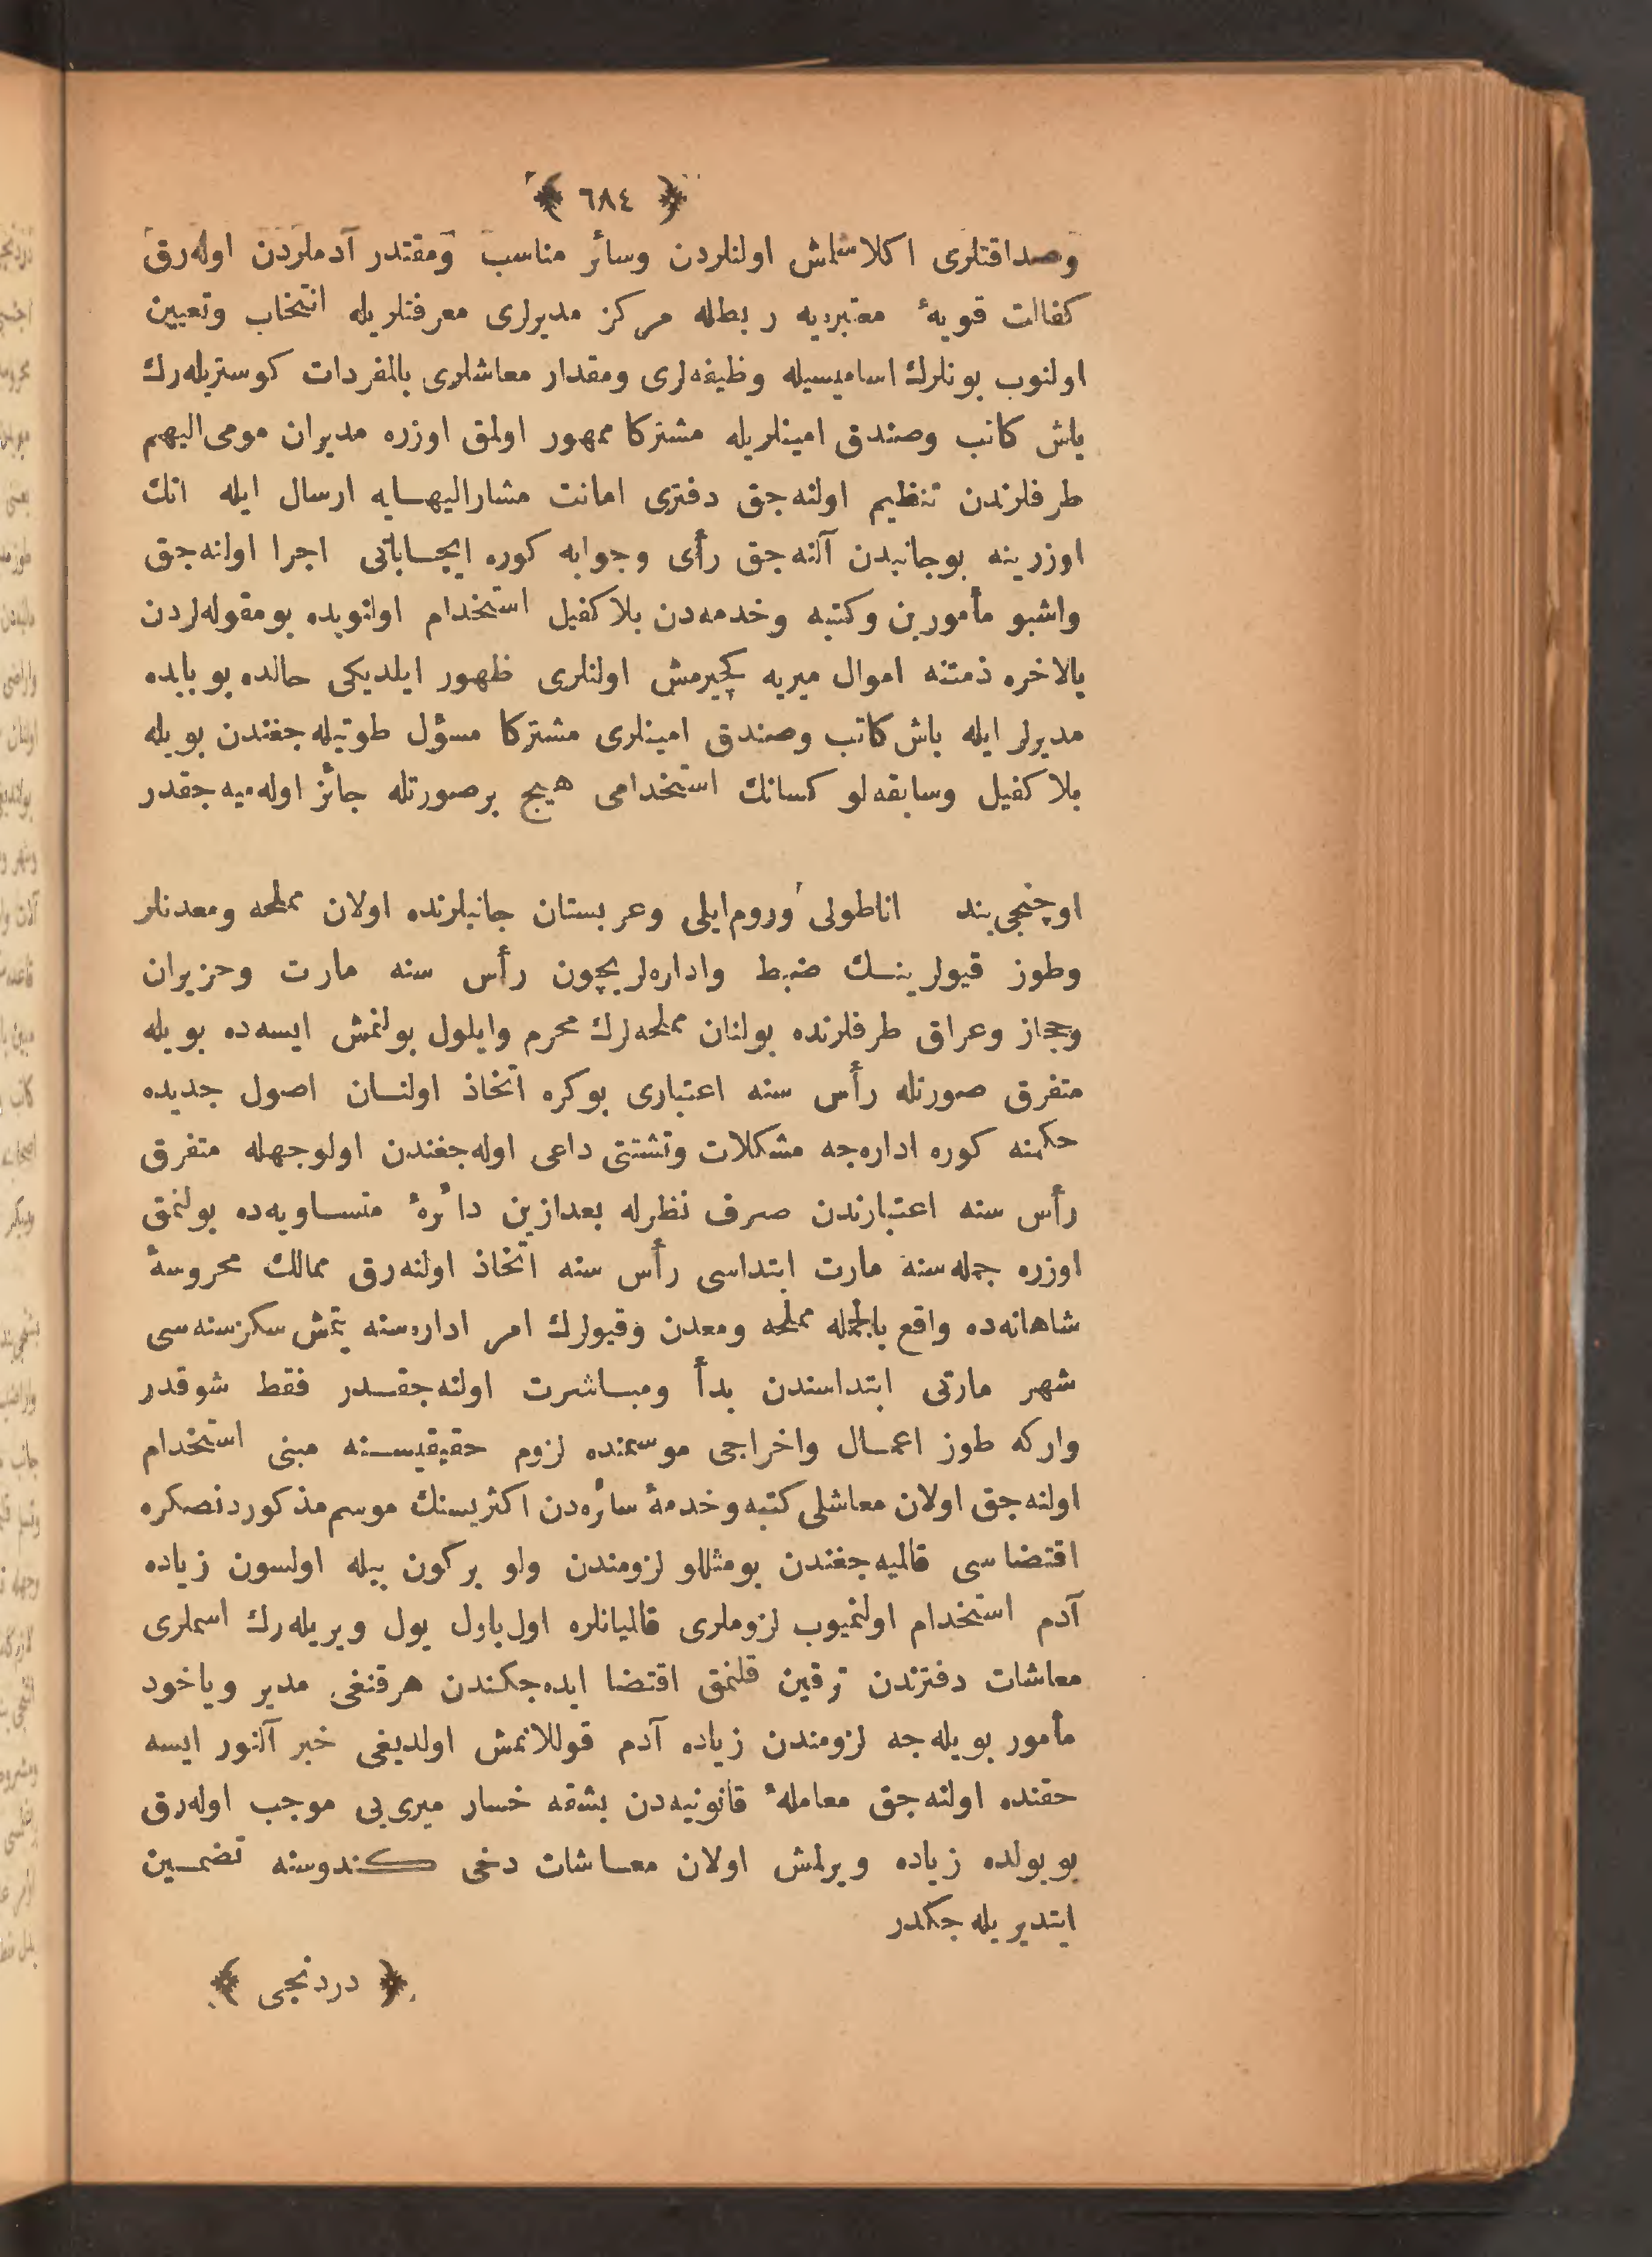 ﴿ ٦٨٤ ﴾
وصداقتلرى اكلاشلمش اولنلردن وسائر مناسب ومقتدر آدملردن اوله‌رق
كفالت قويهٔ معتبره‌يه ربطله مركز مديرلرى معرفتلريله انتخاب وتعيين
اولنوب بونلرك اساميسيله وظيفه‌لرى ومقدار معاشلرى بالمفردات كوستريله‌رك
باش كاتب وصندق امينلريله مشتركا ممهور اولمق اوزره مديران مومى‌اليهم
طرفلرندن تنظيم اولنه‌جق دفترى امانت مشاراليهايه ارسال ايله انك
اوزرينه بوجانبدن آلنه‌جق رأى وجوابه كوره ايجاباتى اجرا اولنه‌جق
واشبو مأمورين وكتبه وخدمه‌دن بلا كفيل استخدام اولنوبده بومقوله‌لردن
بالاخره ذمتنه اموال ميريه كچيرمش اولنلرى ظهور ايلديكى حالده بوبابده
مديرلر ايله باش كاتب وصندق امينلرى مشتركا مسؤل طوتيله‌جغندن بويله
بلا كفيل وسابقه‌لو كسانك استخدامى هيچ برصورتله جائز اوله‌ميه‌جقدر
اوچنجى بند اناطولى وروم‌ايلى وعربستان جانبلرنده اولان مملحه ومعدنلر
وطوز قيولرينك ضبط واداره‌لريچون رأس سنه مارت وحزيران
وحجاز وعراق طرفلرنده بولنان مملحه‌لرك محرم وايلول بولنمش ايسه‌ده بويله
متفرق صورتله رأس سنه اعتبارى بوكره اتخاذ اولنان اصول جديده
حكمنه كوره اداره‌جه مشكلات وتشتتى داعى اوله‌جغندن اولوجهله متفرق
رأس سنه اعتبارندن صرف نظرله بعدازين دائرهٔ متساويه‌ده بولنمق
اوزره جمله‌سنه مارت ابتداسى رأس سنه اتخاذ اولنه‌رق ممالك محروسهٔ
شاهانه‌ده واقع بالجمله مملحه ومعدن وقيولرك امر اداره‌سنه يتمش سكزسنه‌سى
شهر مارتى ابتداسندن بدأ ومباشرت اولنه‌جقدر فقط شوقدر
واركه طوز اعمال واخراجى موسمنده لزوم حقيقيسنه مبنى استخدام
اولنه‌جق اولان معاشلى كتبه وخدمهٔ سائره‌دن اكثريسنك موسم مذكوردنصكره
اقتضاسى قالميه‌جغندن بومثللو لزومندن ولو بركون بيله اولسون زياده
آدم استخدام اولنميوب لزوملرى قالميانلره اول‌باول يول ويريله‌رك اسملرى
معاشات دفترندن ترقين قلنمق اقتضا ايده‌جكندن هرقنغى مدير وياخود
مأمور بويله‌جه لزومندن زياده آدم قوللانمش اولديغى خبر آلنور ايسه
حقنده اولنه‌جق معاملهٔ قانونيه‌دن بشقه خسار ميرى‌يى موجب اوله‌رق
بويولده زياده ويرلمش اولان معاشات دخى كندوسنه تضمين
ايتديريله‌جكدر
﴿ دردنجى ﴾